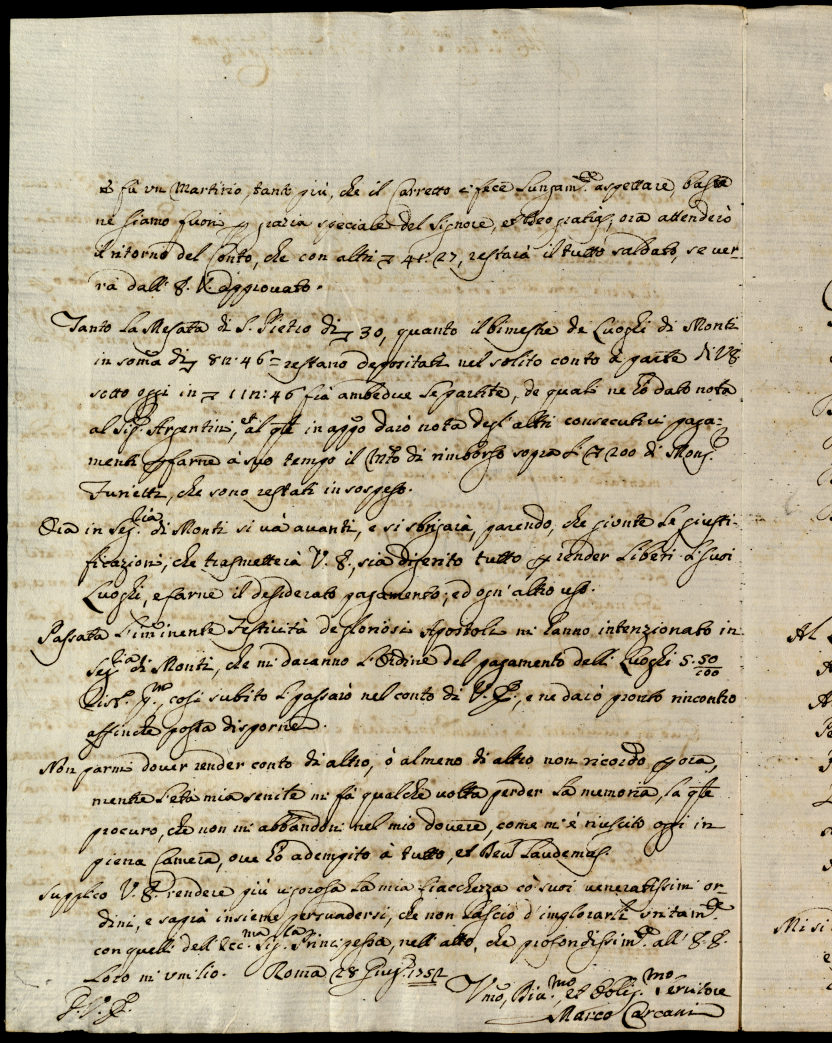 e fù un Martirio, tanto più, che il Carretto ci fece lungam.te aspettare, basta
ne siamo fuori p grazia speciale del Signore, et Deo gratias, ora attenderò
il ritorno del Conto, che con altri 41: 27, restarà il tutto saldato, se ver-
rà dall' V.E. approvato.
Tanto la Mesata di S. Pietro di 30, quanto il bimestre de Luoghi di Monti
in soma di 82: 46 = restano depositati nel solito conto à parte di V.E.
sotto oggi in 112: 46 frà ambedue le partite, de quali ne hò dato nota
al Sig. Argentini, et al qle in app.o darò nota degl' altri consecutivi paga-
menti p farne à suo tempo il Mto di rimborso sopra li 200 di Mons.
Furietti, che sono restati in sospeso.
Ora in Seg.ria di Monti si và avanti, e si sbrigarà, parendo, che gionte le giusti-
ficazioni, che trasmetterà V.E., sia digerito tutto p render liberi li suoi
Luoghi, e farne il desiderato pagamento, ed ogn' altro uso.
Passata l'iminente Festività de gloriosi Apostoli mi hanno intenzionato in
Seg.ria di Monti, che mi daranno l'Ordine del pagamento delli Luoghi 5. 50/100
così subito li passarò nel conto di V.E., e ne darò pronto rincontro
affinche possa disporne.
Non parmi dover render conto di altro, ò almeno di altro non ricordo p ora,
mentre l'età mia senile mi fà qualche volta perder la memoria, la qle
procuro, che non mi abbandoni nel mio dovere, come mi è riuscito oggi in
piena Camera, ove hò adempito à tutto, et Deum Laudemus.
Supplico V.E. rendere più vigorosa la mia fiacchezza cò suoi veneratissimi or-
dini, e sapia insieme persuadersi, che non lascio d'implorarli unitam.te
con quelli dell' Ecc.ma Sig.ra Principessa, nell' atto, che profondissim.te all' E.E.
Loro mi umilio. Roma 28 Giug.o 1752
Umo, Div.mo, et Oblig.mo Servitore
Marco Carcani